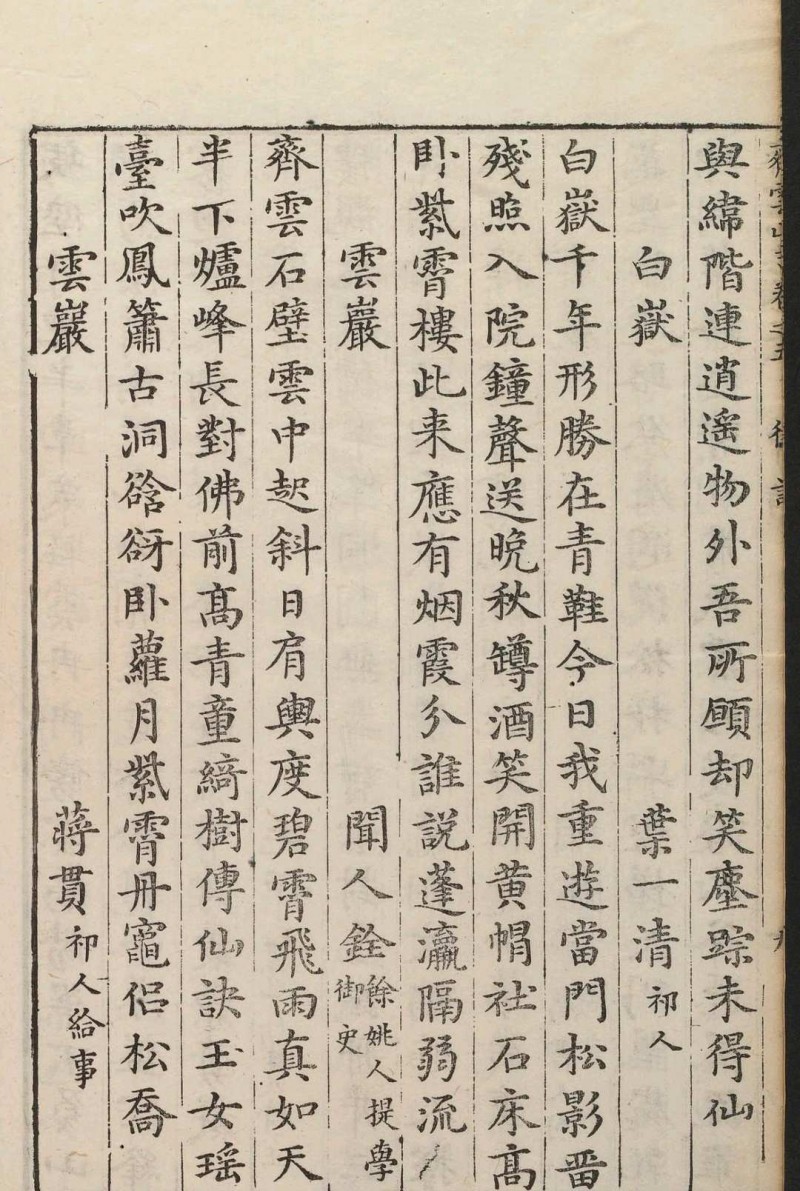 齊雲山志卷之五
與緯階連逍遥物外吾所願却笑塵踪未得仙
白嶽 葉一清祁人
白嶽千年形勝在青鞋今日我重遊當門松影畱
殘照入院鐘聲送晩秋罇酒笑開黄帽社石床髙
卧紫霄樓此来應有烟霞分誰説蓬瀛隔弱流
雲巖 聞人銓餘姚人提學御史
齊雲石壁雲中起斜日肩輿度碧霄飛雨真如天
半下爐峰長對佛前髙青童綺樹傳仙訣玉女瑶
臺吹鳳簫古洞谽谺卧蘿月紫霄丹竈侣松喬
雲巖 蒋貫祁人給事